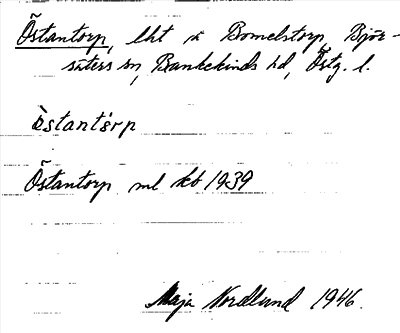 Östantorp, lht å Bomelstorp, Björ-
säters sn, Bankekinds hd, Östg. l.
östantòrp
Östantorp ml kb 1939
Maja Nordlund 1946.